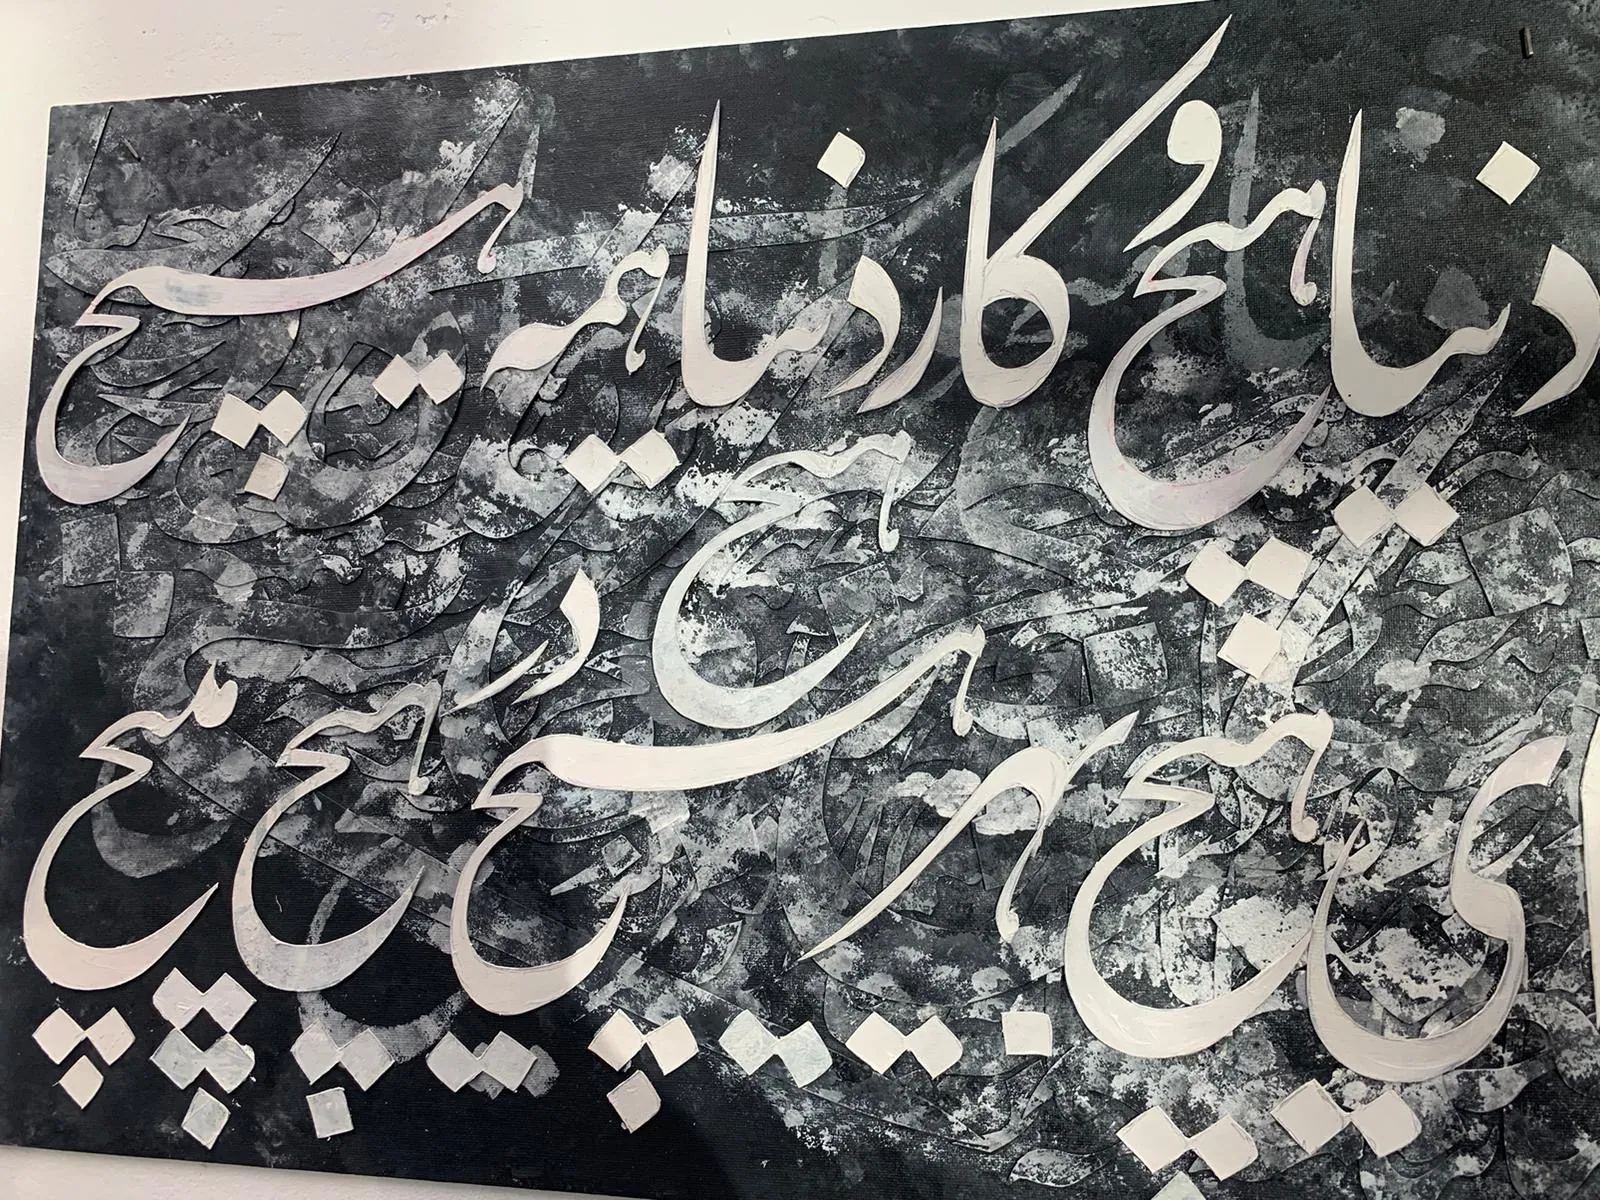 دنیا هیچ و کار دنیا همه هیچ
ای هیچ بهر هیچ هیچ در هیچ مپیچ